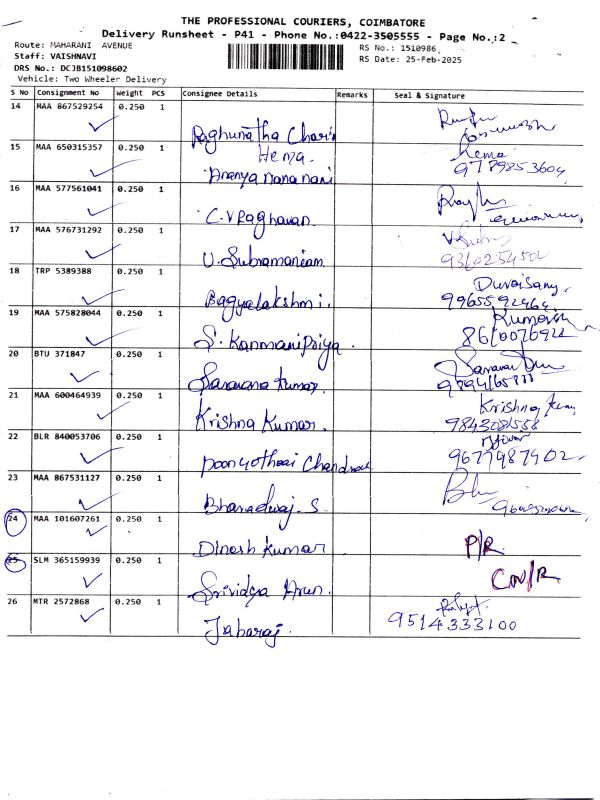 THE PROFESSIONAL COURIERS, COIMBATORE
Delivery Runsheet - P41 - Phone No.:0422-3505555 - Page No.:2
Route: MAHARANI AVENUE
RS No.: 1510986
Staff: VAISHNAVI
RS Date: 25-Feb-2025
DRS No.: DCJB151098602
Vehicle: Two Wheeler Delivery
S No Consignment No Weight PCS Consignee Details Remarks Seal & Signature
14 MAA 867529254 0.250 1
Raghunatha Chari
15 MAA 650315357 0.250 1 Hema
Hema.
Ananya nana nani 9789853604
16 MAA 577561041 0.250 1
C.V Raghavan
17 MAA 576731292 0.250 1
U. Subramaniam
18 TRP 5389388 0.250 1 Duraisamy
Bagyalakshmi. 9965592464
19 MAA 575828044 0.250 1
S. Kanmanipriya.
20 BTU 371847 0.250 1
Saravana Kumar
21 MAA 600464939 0.250 1 Krishna
Krishna Kumar. 9843081558
22 BLR 840053706 0.250 1
9677987902
23 MAA 867531127 0.250 1
Bharadwaj. S
24 MAA 101607261 0.250 1
Dinesh Kumar P/R
25 SLM 365159939 0.250 1
Srividya Arun. CN/R
26 MTR 2572868 0.250 1
Jabaraj. 9514333100